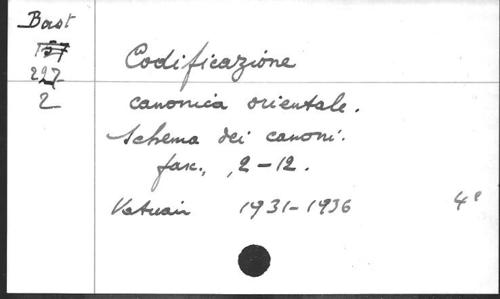 Bast
227
2
Codificazione
canonica orientale.
Schema dei canoni.
fasc., 2-12.
1931-1936 4°